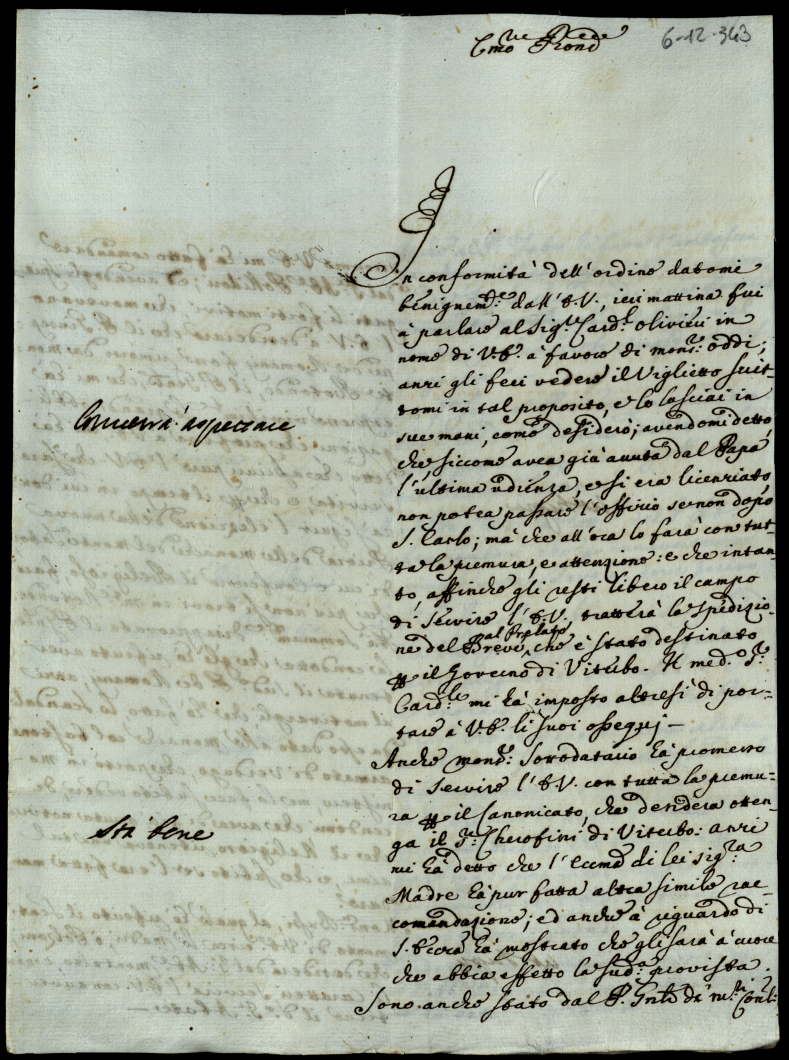 6-12-343
In conformità dell'ordine datomi
benignem.te dall'E.V., ieri mattina fui
à parlare al Sig.r Card.l Olivieri in
nome di V.E. à favore di mons.r Oddi;
anzi gli feci vedere il Viglietto scrit-
tomi in tal proposito, e lo lasciai in
sue mani, come desiderò; avendomi detto,
che siccome avea già avuta dal Papa
l'ultima udienza, e si era licenziato,
non potea passare l'offizio se non dopo
S. Carlo; mà che all'ora lo farà con tut-
ta la premura, e attenzione: e che intan-
to, affinche gli resti libero il campo
di servire l'E.V., tratterà la spedizio-
ne del Breve al Prelato, che è stato destinato
p il Governo di Viterbo. Il med.o S.r
Card.le mi hà imposto altresì di por-
tare à V.E. li suoi ossequj —
Anche mons.r Sottodatario hà promesso
di servire l'E.V. con tutta la premu-
ra p il Canonicato, che desidera otten-
ga il S.r Cherofini di Viterbo: anzi
mi hà detto che l'Eccma di lei sig.ra
Madre hà pur fatta altra simile rac-
comandazione; ed anche à riguardo di
S. Eccza hà mostrato che gli sarà à cuore
che abbia effetto la sud.a provista.
Sono anche stato dal P. Gnle di
Converrà aspettare
Stà bene